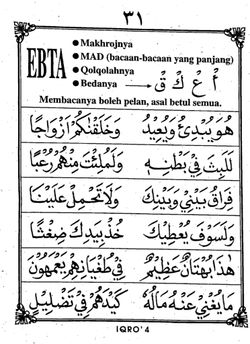 ٣١
EBTA
● Makhrojnya
● MAD (bacaan-bacaan yang panjang)
● Qolqolahnya
● Bedanya → أَ عْ كَ قْ
Membacanya boleh pelan, asal betul semua.
هُوَ يُبْدِئُ وَيُعِيْدُ وَخَلَقْنٰكُمْ أَزْوَاجًا
لَلَبِثَ فِيْ بَطْنِهٖ وَلَمُلِئْتَ مِنْهُمْ رُعْبًا
فِرَاقُ بَيْنِيْ وَبَيْنِكَ وَلَا تَحْمِلْ عَلَيْنَا
وَلَسَوْفَ يُعْطِيْكَ خُذْ بِيَدِكَ ضِغْثًا
هٰذَا بُهْتَانٌ عَظِيْمٌ فِيْ طُغْيَانِهِمْ يَعْمَهُوْنَ
مَا يُغْنِيْ عَنْهُ مَالُهٗ كَيْدَهُمْ فِيْ تَضْلِيْلٍ
IQRO' 4